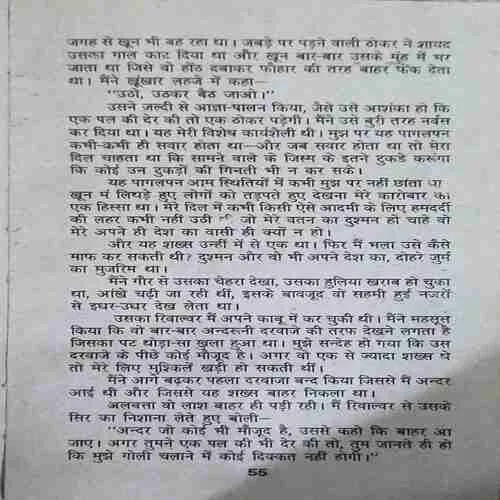 जगह से खून भी बह रहा था। जबड़े पर पड़ने वाली ठोकर ने शायद
उसका गाल काट दिया था और खून बार-बार उसके मुंह में भर
जाता था जिसे वो होंठ दबाकर फौहार की तरह बाहर फेंक देता
था। मैंने खूंखार लहजे में कहा—
"उठो, उठकर बैठ जाओ।"
उसने जल्दी से आज्ञा-पालन किया, जैसे उसे आशंका हो कि
एक पल की देर की तो एक ठोकर पड़ेगी। मैंने उसे बुरी तरह नर्वस
कर दिया था। यह मेरी विशेष कार्यशैली थी। मुझ पर यह पागलपन
कभी-कभी ही सवार होता था—और जब सवार होता था तो मेरा
दिल चाहता था कि सामने वाले के जिस्म के इतने टुकडे करूंगा
कि कोई उन टुकड़ों की गिनती भी न कर सके।
यह पागलपन आम स्थितियों में कभी मुझ पर नहीं छाता था
खून में लिथड़े हुए लोगों को तड़पते हुए देखना मेरे कारोबार का
एक हिस्सा था। मेरे दिल में कभी किसी ऐसे आदमी के लिए हमदर्दी
की लहर कभी नहीं उठी जो मेरे वतन का दुश्मन हो चाहे वो
मेरे अपने ही देश का वासी ही क्यों न हो।
और यह शख्स उन्हीं में से एक था। फिर मैं भला उसे कैसे
माफ कर सकती थी? दुश्मन और वो भी अपने देश का, दोहरे जुर्म
का मुजरिम था।
मैंने गौर से उसका चेहरा देखा, उसका हुलिया खराब हो चुका
था, आंखें चढ़ी जा रही थीं, इसके बावजूद वो सहमी हुई नजरों
से इधर-उधर देख लेता था।
उसका रिवाल्वर मैं अपने काबू में कर चुकी थी। मैंने महसूस
किया कि वो बार-बार अन्दरूनी दरवाजे की तरफ देखने लगता है
जिसका पट थोड़ा-सा खुला हुआ था। मुझे सन्देह हो गया कि उस
दरवाजे के पीछे कोई मौजूद है। अगर वो एक से ज्यादा शख्स थे
तो मेरे लिए मुश्किलें खड़ी हो सकती थीं।
मैंने आगे बढ़कर पहला दरवाजा बन्द किया जिससे मैं अन्दर
आई थी और जिससे यह शख्स बाहर निकला था।
अलबत्ता वो लाश बाहर ही पड़ी रही। मैं रिवाल्वर से उसके
सिर का निशाना लेते हुए बोली—
"अन्दर जो कोई भी मौजूद है, उससे कहो कि बाहर आ
जाए। अगर तुमने एक पल की भी देर की तो, तुम जानते ही हो
कि मुझे गोली चलाने में कोई दिक्कत नहीं होगी।"
55